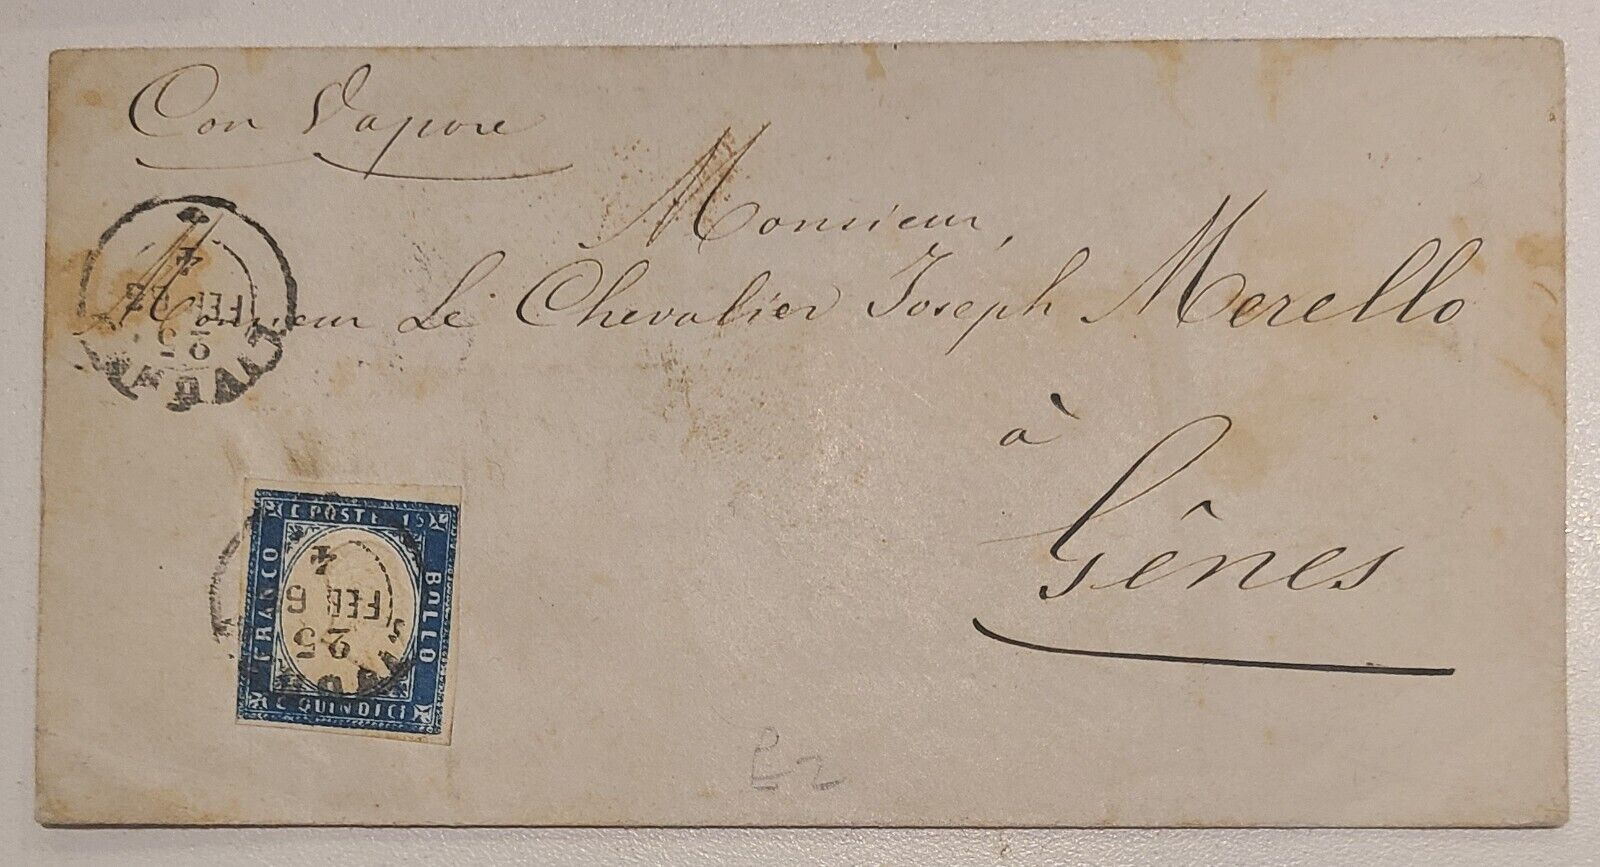 Con Vapore
Monsieur,
Monsieur Le Chevalier Joseph Merello
à
Gênes
4
FEB 63
25
C POSTE 15
FRANCO
BOLLO
C QUINDICI
4
FEB 6
25